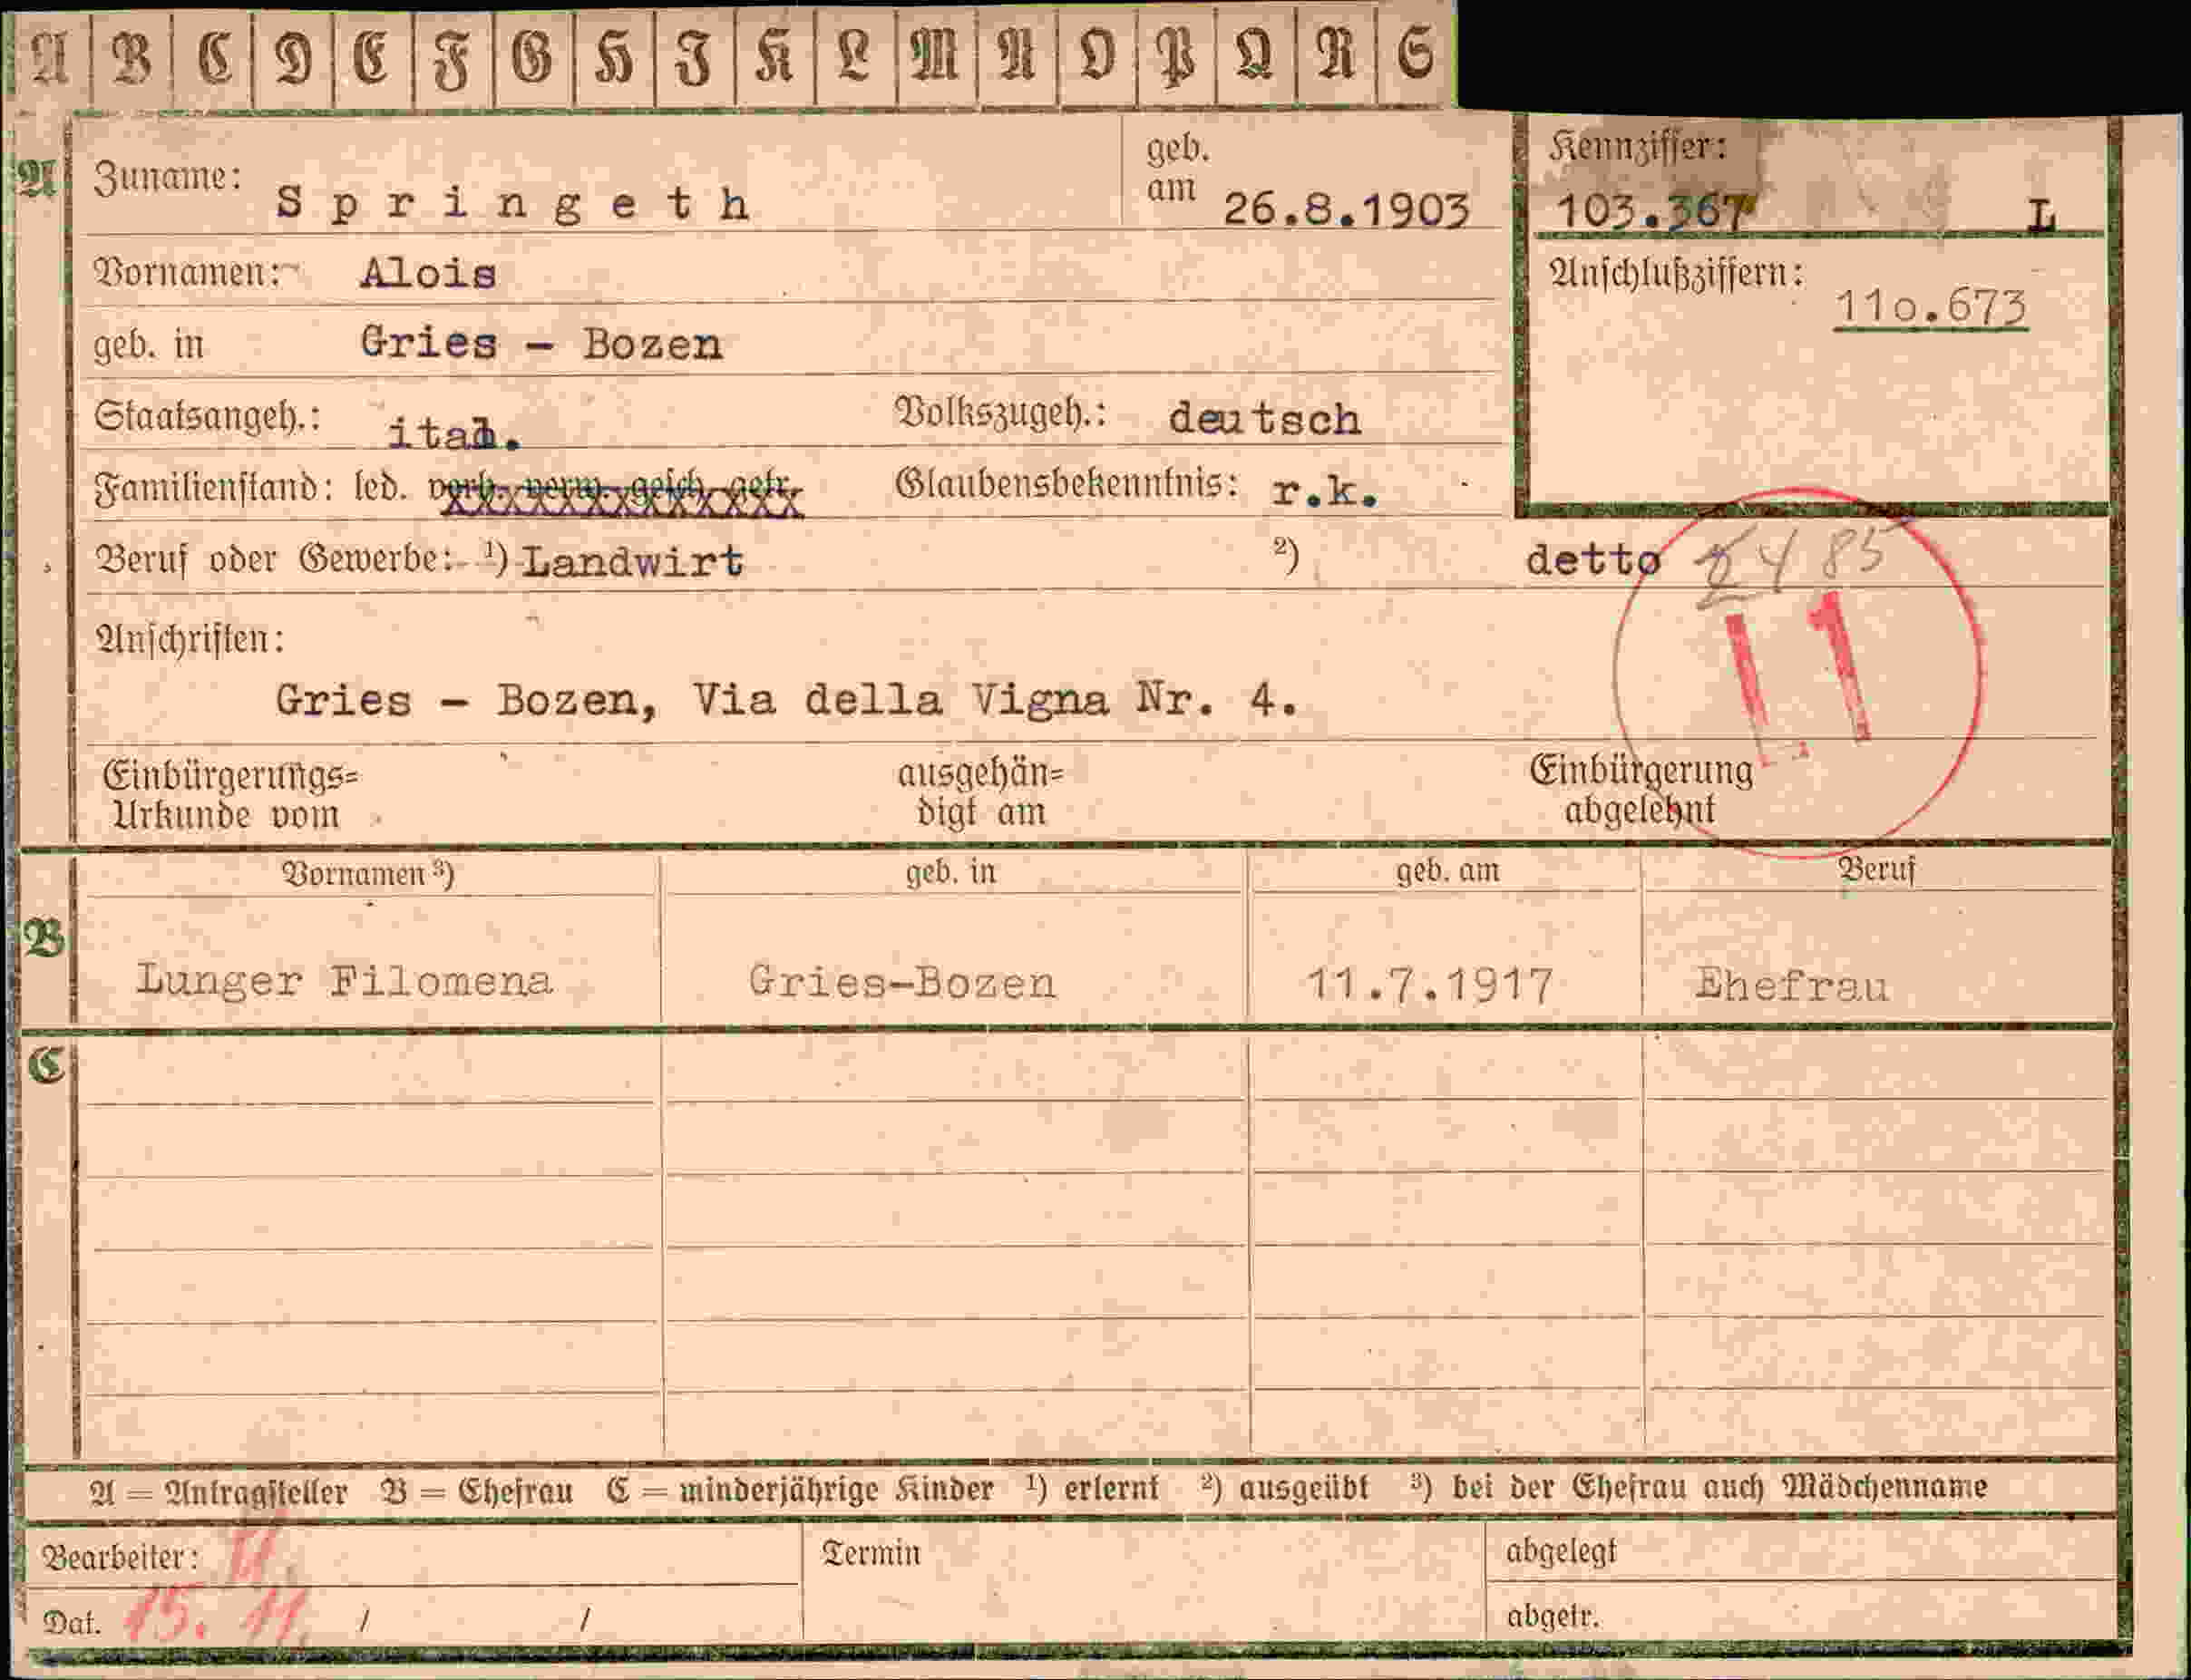 A B C D E F G H I K L M N O P Q R S
A Zuname: Springeth geb. am 26.8.1903
Kennziffer: 103.367 L
Vornamen: Alois
Anschlußziffern: 11o.673
geb. in Gries - Bozen
Staatsangeh.: ital. Volkszugeh.: deutsch
Familienstand: led. verh. verw. gesch. getr. Glaubensbekenntnis: r.k.
Beruf oder Gewerbe: 1) Landwirt 2) detto
85
11
Anschriften:
Gries - Bozen, Via della Vigna Nr. 4.
Einbürgerungs= ausgehän= Einbürgerung
Urkunde vom digt am abgelehnt
Vornamen 3) geb. in geb. am Beruf
B Lunger Filomena Gries-Bozen 11.7.1917 Ehefrau
C
A = Antragsteller B = Ehefrau C = minderjährige Kinder 1) erlernt 2) ausgeübt 3) bei der Ehefrau auch Mädchenname
Bearbeiter: Termin abgelegt
Dat. 15. 11. / / abgetr.